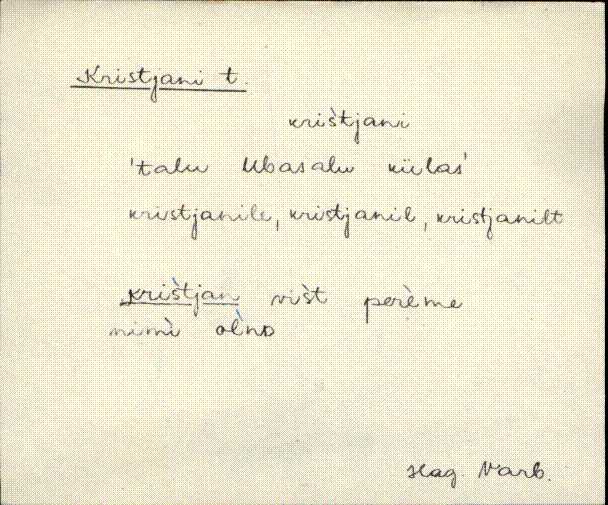 Kristjani t.
krìštjani
'talu Ubasalu külas'
kristjanile, kristjanil, kristjanilt
krìštjan vìšt perème
nimì òlno
Hag. Varb.